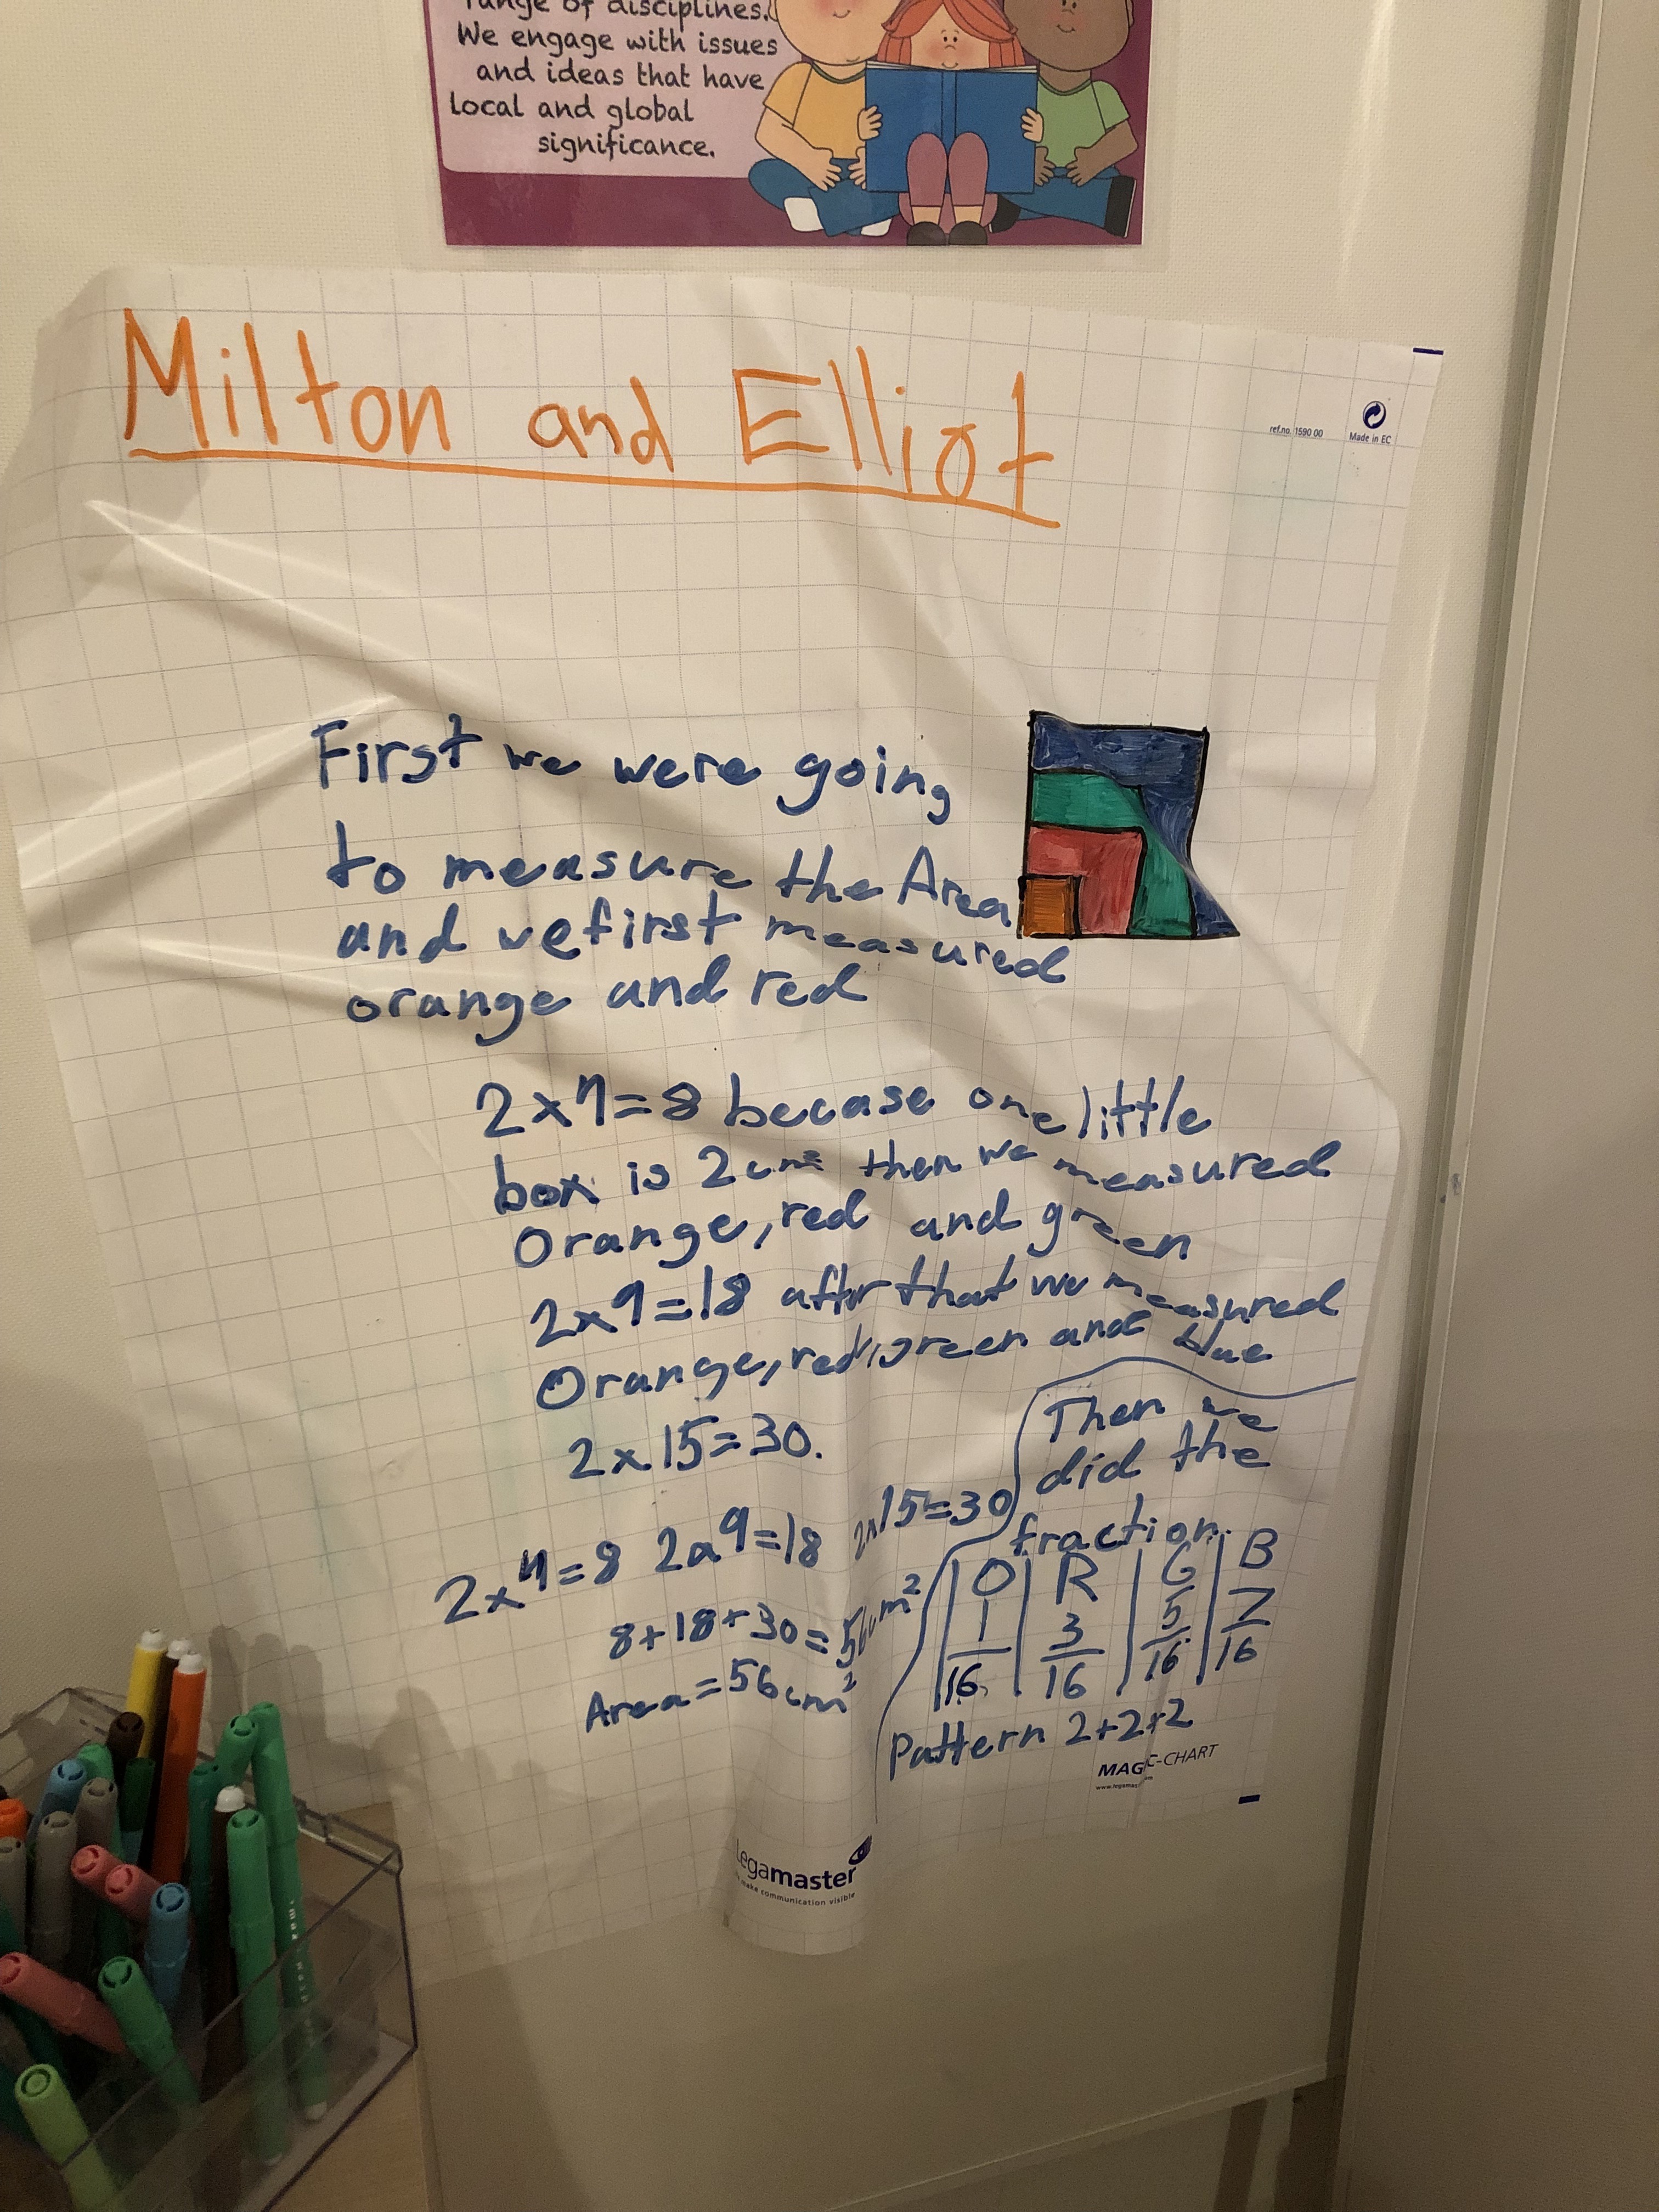 range of disciplines.
We engage with issues
and ideas that have
local and global
significance.
Milton and Elliot
ref.no. 1590 00
Made in EC
First we were going
to measure the Area
and we first measured
orange and red
2x4=8 becase one little
box is 2cm² then we measured
Orange, red and green
2x9=18 after that we measured
Orange, red, green and blue
2x15=30.
Then we
did the
fraction.
2x4=8 2x9=18 2x15=30
8+18+30=56cm²
Area=56cm²
O R G B
1 3 5 7
16 16 16 16
Pattern 2+2+2
MAGIC-CHART
Legamaster
make communication visible